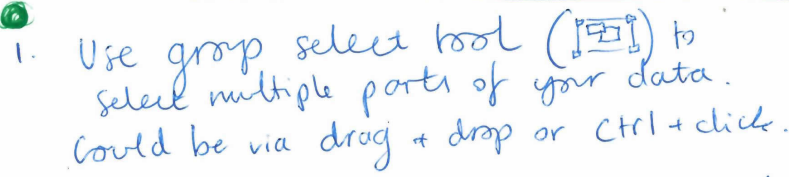 1. Use group select tool ( ) to
select multiple parts of your data.
Could be via drag + drop or Ctrl + click.